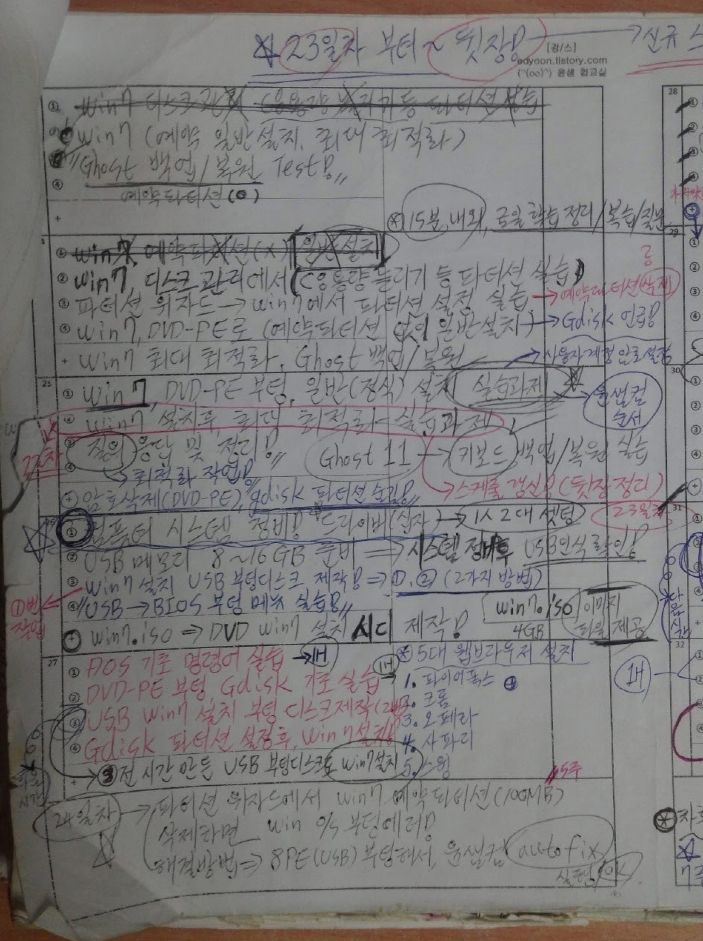 ☆ 23일차 부터~ 뒷장!! → 신규 스
[컴/스]
edyoon.tistory.com
(^(oo)^) 윤샘 컴교실
① win7 디스크 관리 (용량 늘리기 등 파티션 실습
win7 (예약 일반설치, 최대 최적화)
"Ghost 백업/복원 Test!!"
예약파티션(0)
+
15분, 내외, 금일 학습 정리/복습/질문
① win7, 예약파티션(x) 일반설치
② win7 디스크 관리에서 (C용량 늘리기 등 파티션 실습)
③ 파티션 위자드 → win7에서 파티션 설정 실습 → 예약파티션(삭제)
④ win7, DVD-PE로 (예약파티션 없이 일반설치) → Gdisk 언급!
+ win7 최대 최적화, Ghost 백업/복원
→ 사용자 계정 암호설정
25
① win7, DVD-PE 부팅, 일반(정식) 설치 실습과제
윤샘컴 순서
② win7 설치후 최대 최적화 실습과제
22차
③ 질의 응답 및 정리!! Ghost 11 → 키보드 백업/복원 실습
→ 최적화 작업!!
→ 스케줄 갱신!! (뒷장 정리)
+ 암호삭제(DVD-PE), gdisk 파티션 습관!!
23일차
① 컴퓨터 시스템 정비!! 드라이버(십자) → 1人 2대 셋팅
② USB 메모리 8~16GB 준비 ⇒ 시스템 정비후 USB인식확인!!
③ win7 설치 USB 부팅디스크 제작!! ⇒ ①, ② (2가지 방법)
①번 작업
④ "USB → BIOS 부팅 메뉴 실습!!"
win7.iso 이미지
4GB 파일 제공
win7.iso ⇒ DVD win7 설치 시디 제작!!
27
① DOS 기초 명령어 실습 → 1H
* 5대 웹브라우저 설치
② DVD-PE 부팅 Gdisk 기초 실습 1H
1. 파이어폭스
③ USB win7 설치 부팅 디스크제작
2. 크롬
3. 오페라
④ Gdisk 파티션 설정후, win7설치!!
4. 사파리
전 시간 만든 USB 부팅디스크로 win7설치
5. 스윙
5주
24일차 → 파티션 위자드에서 win7 예약파티션(100MB)
삭제하면 win O/S 부팅에러!!
해결방법 ⇒ 8PE(USB) 부팅해서, 윤샘컴 autofix
실행 OK
28
29
30
31
32
1H
7주